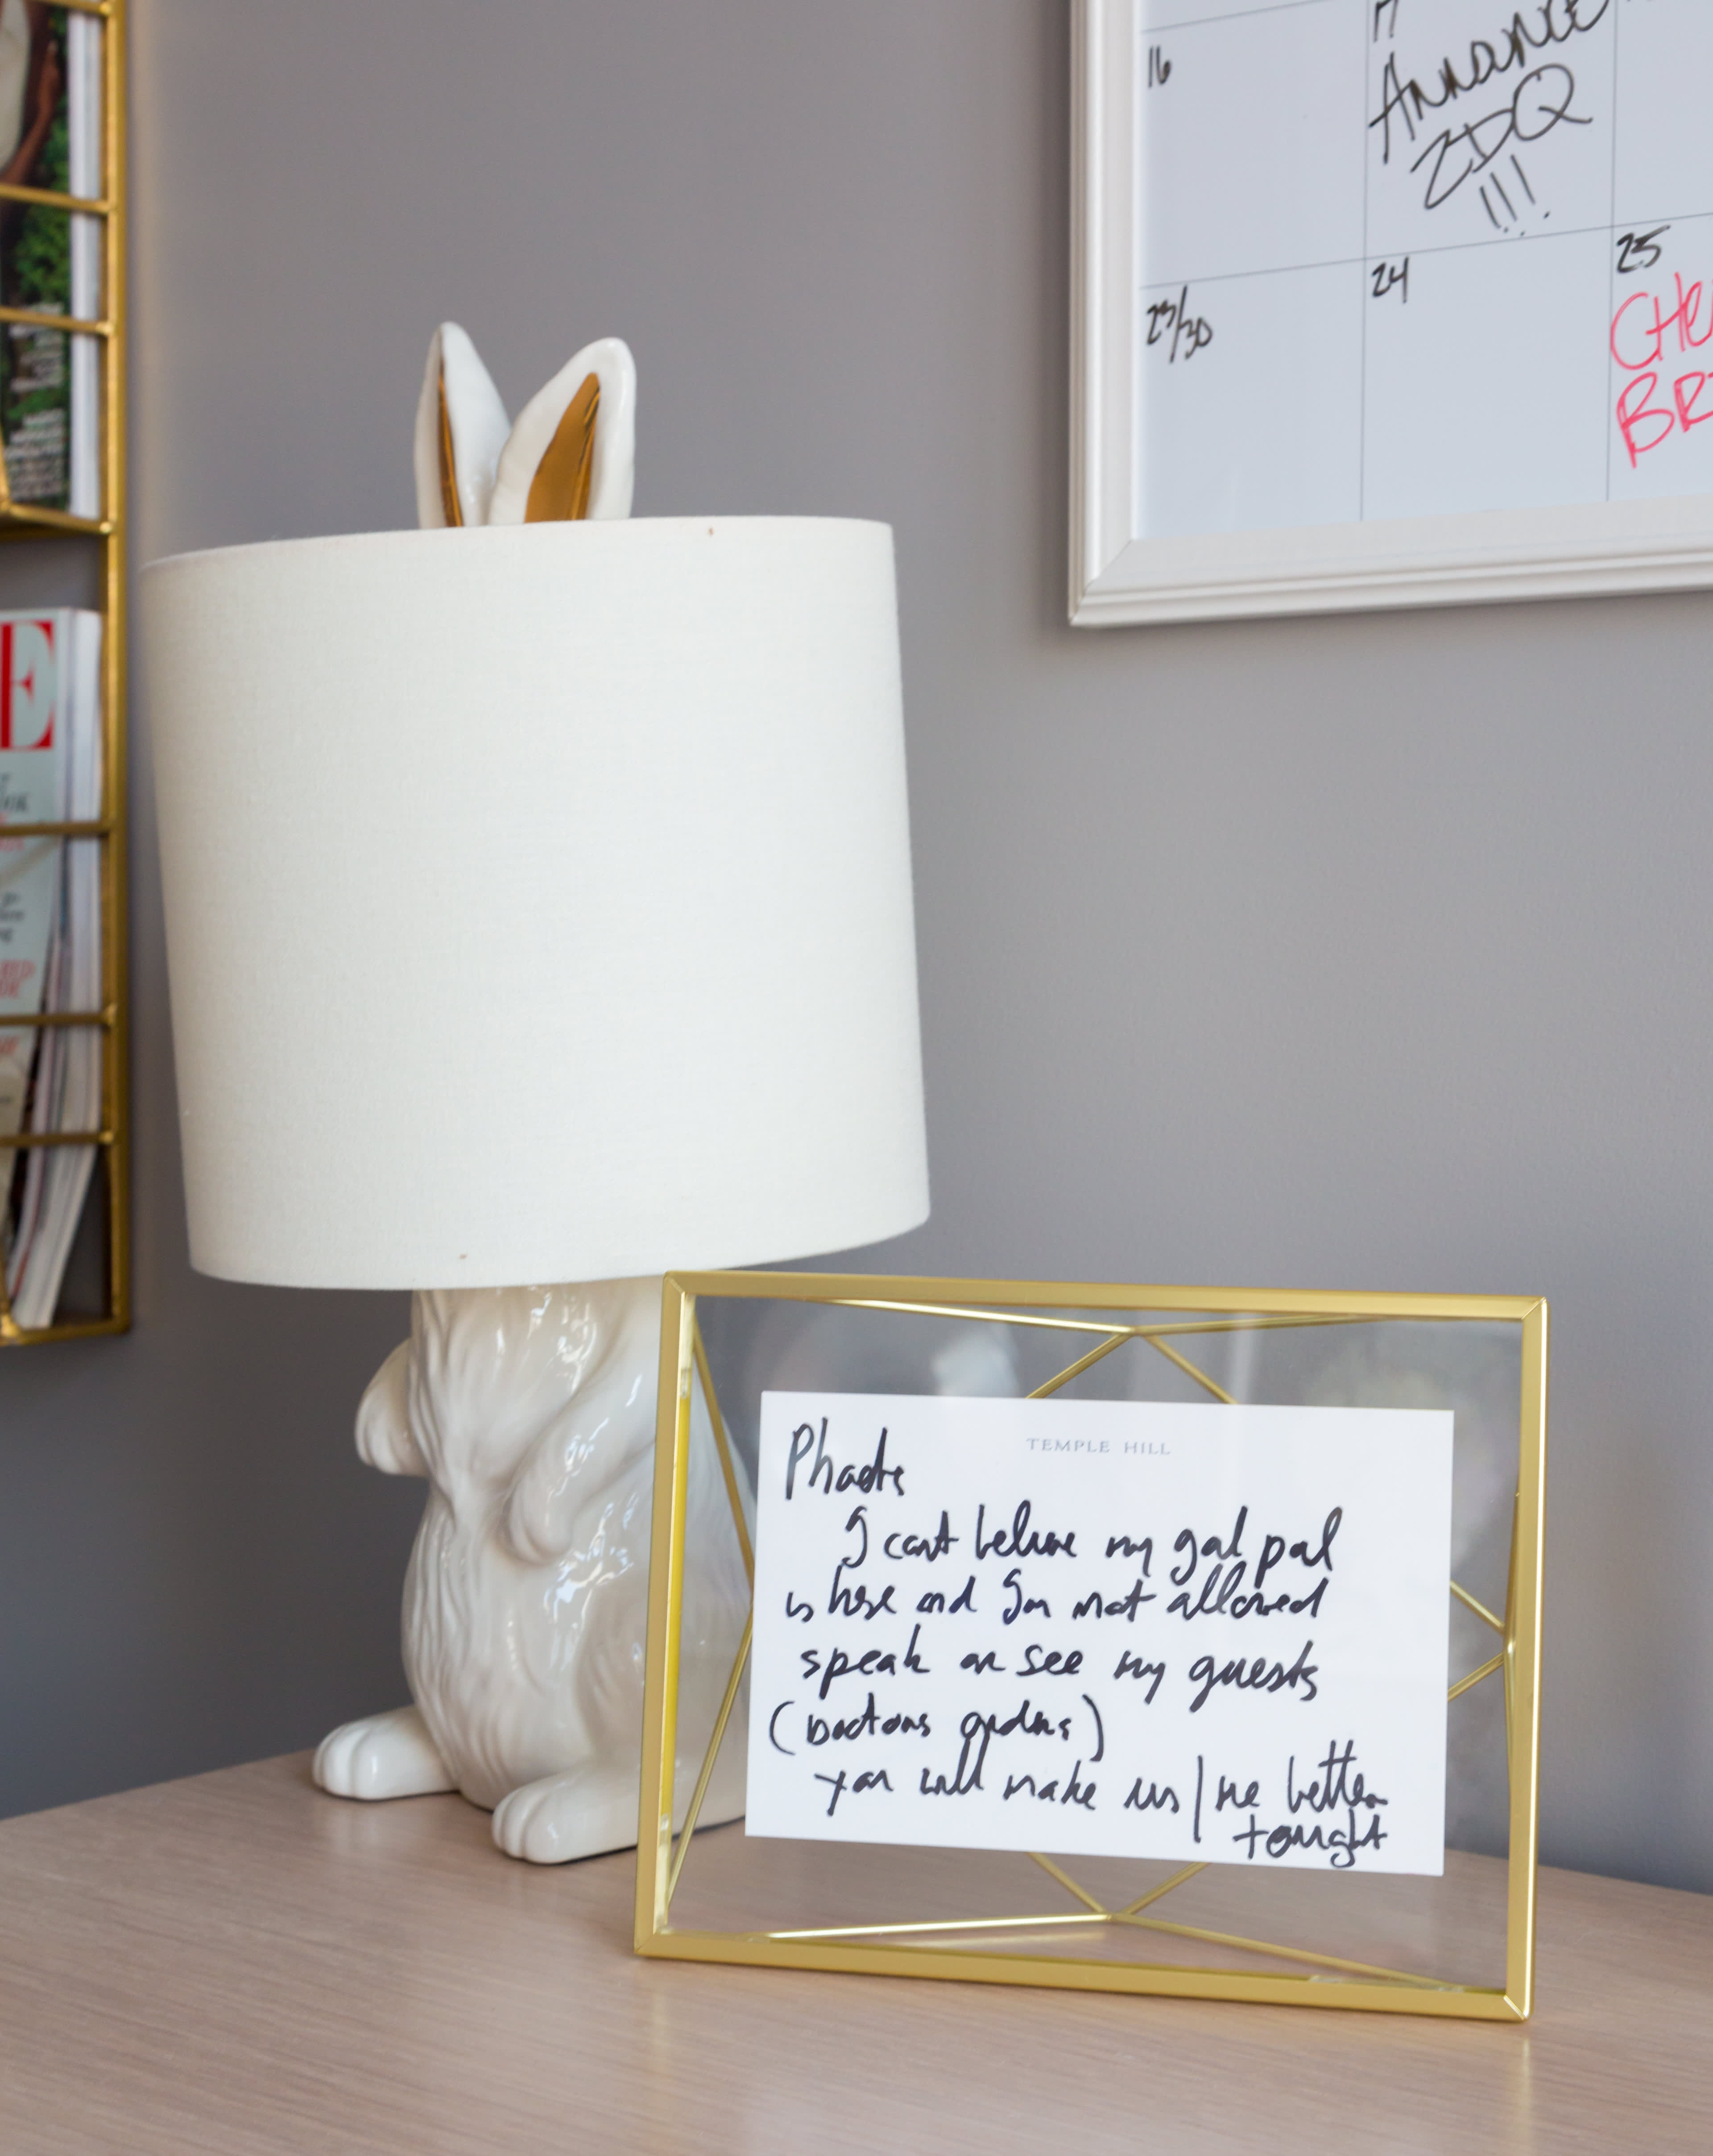 16
17
Announce
ZDQ
!!!
23/30
24
25
CHE
BRI
E
TEMPLE HILL
Phoebs
I cant believe my gal pal
is here and Im not allowed
speak or see my guests
(Doctors orders)
you will make us/me better
tonight